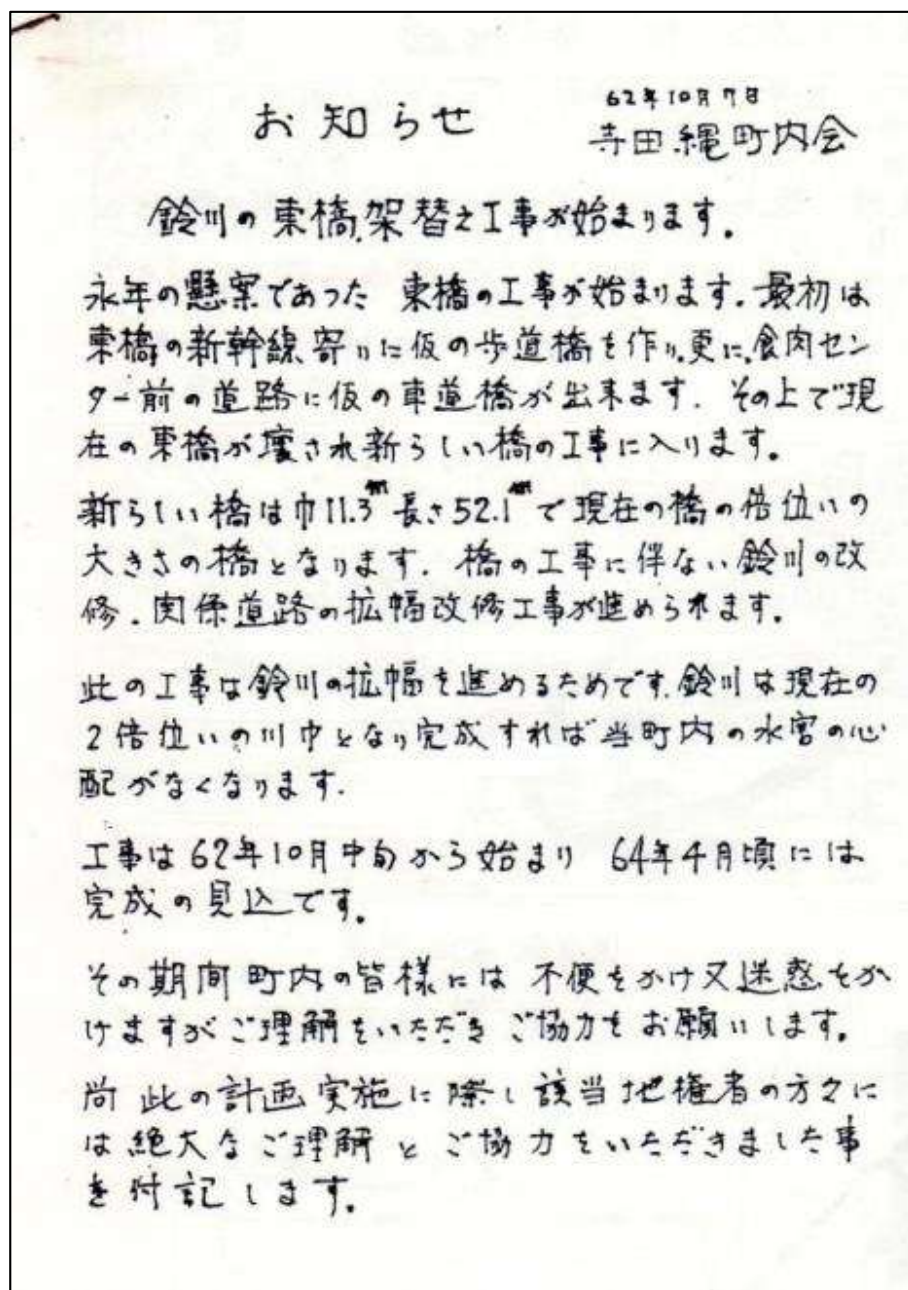 62年10月7日
お知らせ
寺田縄町内会
鈴川の東橋、架替え工事が始まります。
永年の懸案であった 東橋の工事が始まります。最初は
東橋の新幹線寄りに仮の歩道橋を作り、更に、食肉セン
ター前の道路に仮の車道橋が出来ます。その上で現
在の東橋が壊され新らしい橋の工事に入ります。
新らしい橋は巾11.3m長さ52.1mで現在の橋の倍位いの
大きさの橋となります。橋の工事に伴ない鈴川の改
修.関係道路の拡幅改修工事が進められます。
此の工事は鈴川の拡幅を進めるためです。鈴川は現在の
2倍位いの川巾となり完成すれば当町内の水害の心
配がなくなります.
工事は62年10月中旬から始まり 64年4月頃には
完成の見込です。
その期間町内の皆様には 不便をかけ又迷惑をか
けますがご理解をいただき ご協力をお願いします。
尚 此の計画実施に際し該当地権者の方々に
は絶大なご理解とご協力をいただきました事
を付記します。